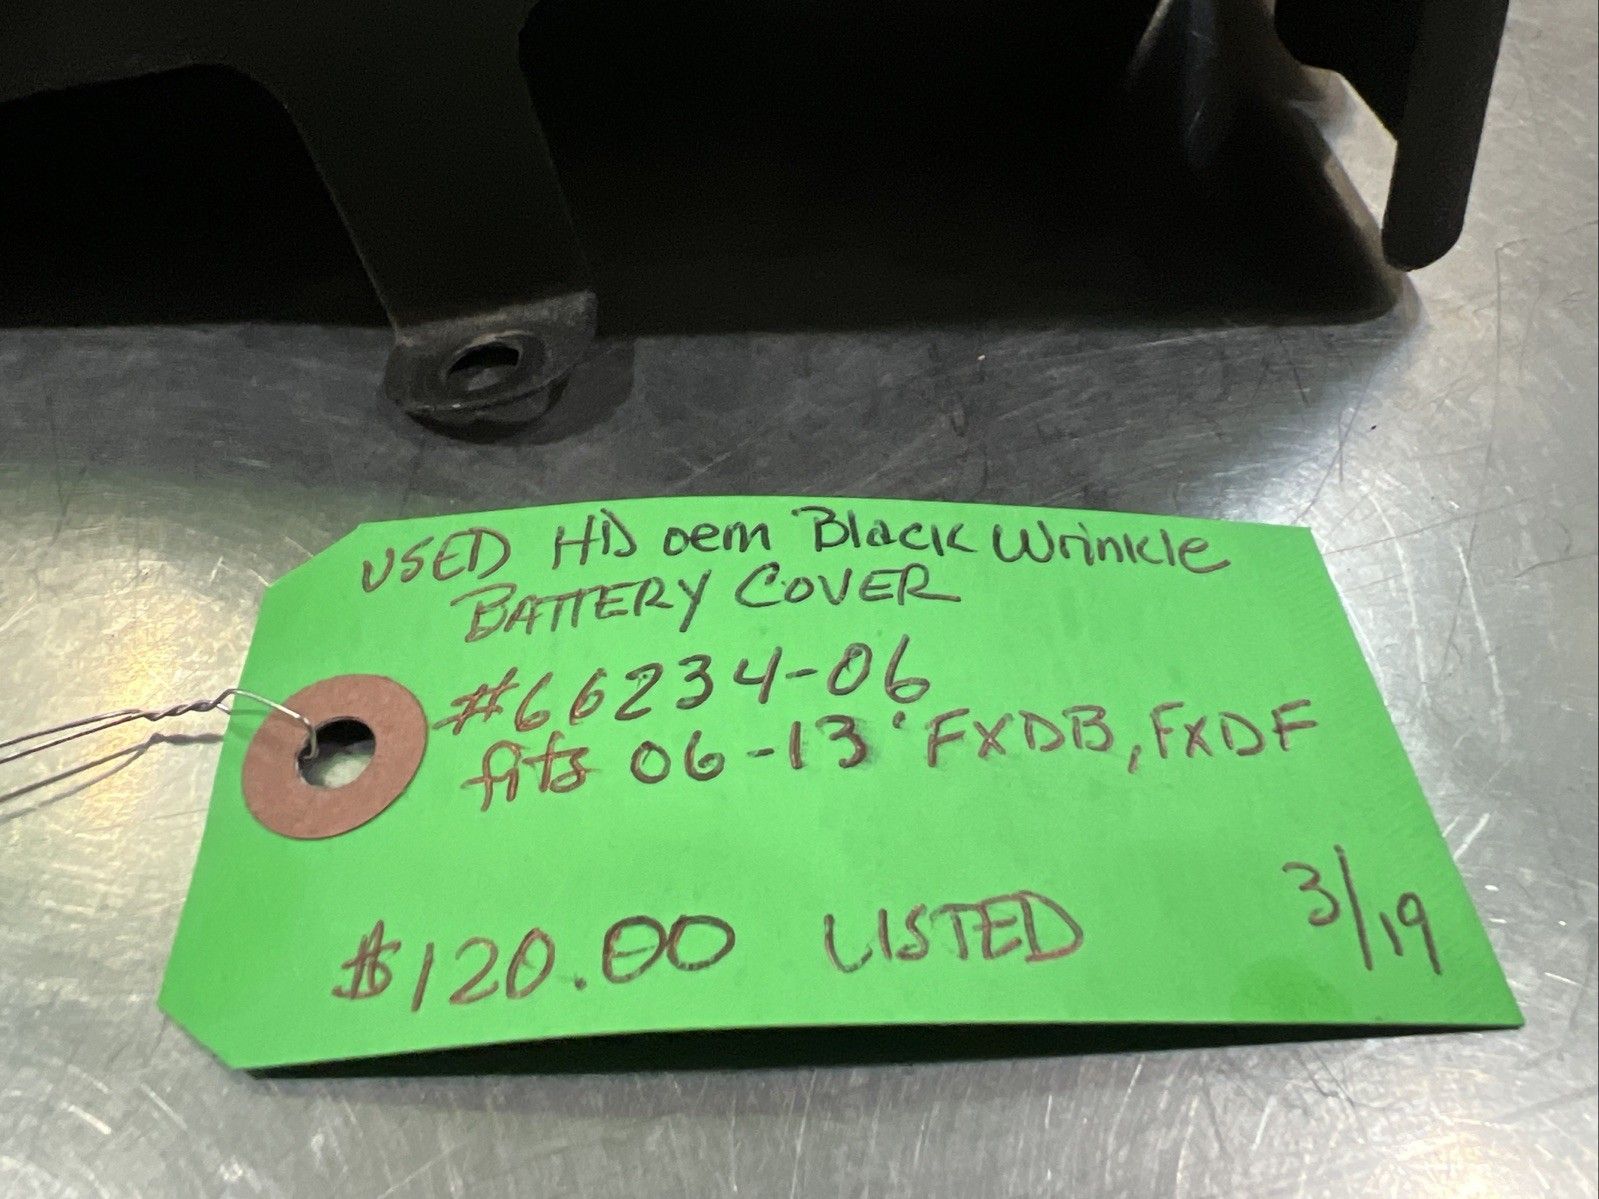 USED HD oem Black Wrinkle
BATTERY COVER
#66234-06
fits 06-13' FXDB, FXDF
$120.00 LISTED 3/19